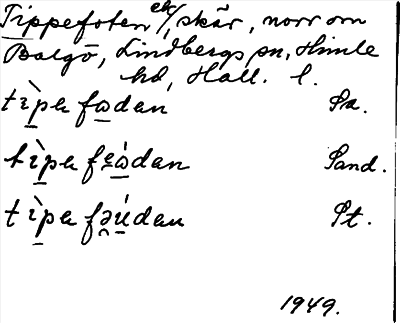 Tippefoten ck/, skär, norr om
Balgö, Lindbergs sn, Himle
hd, Hall. l.
tìpa fɷdan Sa.
tìpa fe̯ɷ́dan Sand.
tìpa fə̯ú̱dan Pt.
1949.